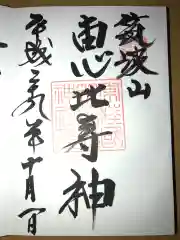 筑波山
恵比寿神
平成二九年十月一日